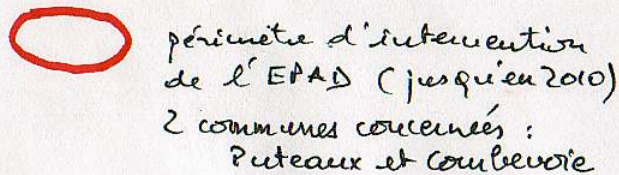 périmètre d'intervention
de l'EPAD (jusqu'en 2010)
2 communes concernées :
Puteaux et Courbevoie